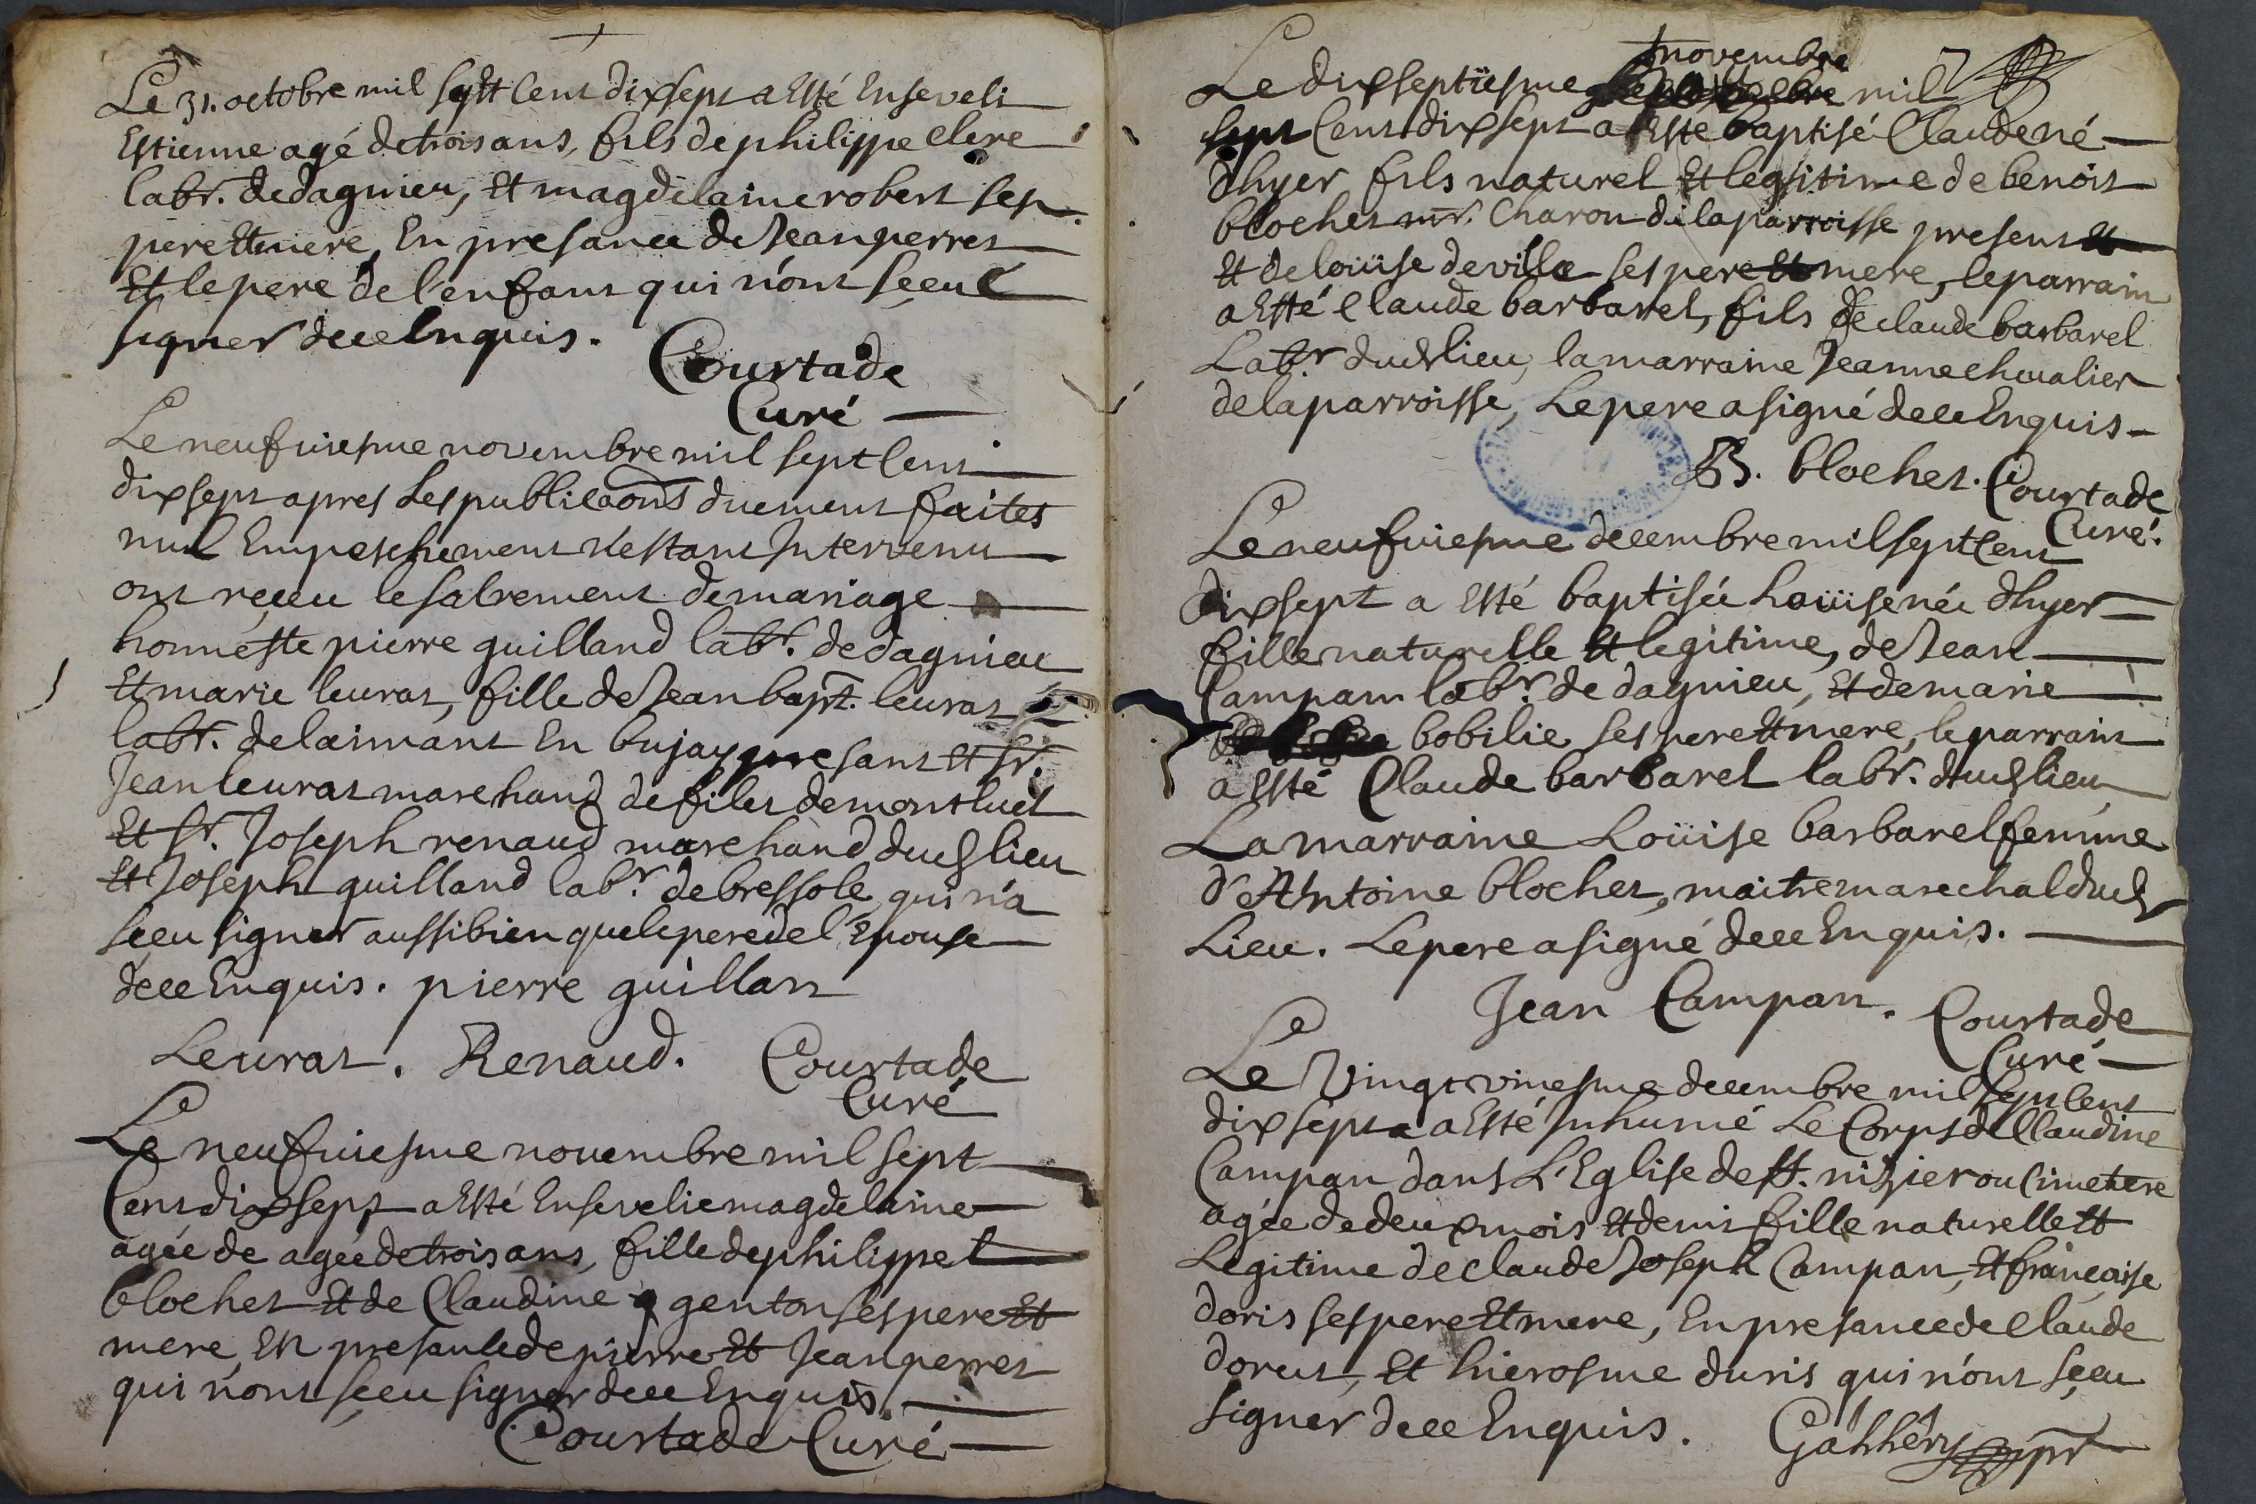 Le 31. octobre mil sept cent dixsept a Esté Enseveli
Estienne agé de trois ans, fils de philippe clere
labr. de dagnieu, Et magdelaine robert ses
pere Et mere, En presance de Jean perret
Et le pere de l'enfant qui n'ont sçeu
signer de ce Enquis.
Courtade
Curé
Le neufviesme novembre mil sept cent
dixsept apres les publicaons duement faites
nul Empeschement n'estant Intervenu
ont reçeu le sacrement de mariage
honneste pierre guilland labr. de dagnieu
Et marie leurat, fille de Jean bapt. leurat
labr. de laimant En bujay presant et sr.
Jean leurat marchand de filet de montluel
Et sr. Joseph renaud marchand dud lieu
Et Joseph guilland labr. de bressole, qui n'a
sçeu signer aussi bien que le pere de l'Epouse
de ce Enquis. pierre guillan
Leurat. Renaud. Courtade
Curé
Le neufviesme novembre mil sept
Cent dixsept a Esté Ensevelie magdelaine
agée de agée de trois ans, fille de philippe
blochet Et de Claudine genton ses pere Et
mere, En presance de pierre Et Jean perret
qui n'ont sçeu signer de ce Enquis.
Courtade Curé
novembre
Le dixseptiesme mil
sept Cent dixsept a Esté baptisé Claude né
d'hyer fils naturel Et legitime de benoist
blochet mr. Charon de la parroisse present
et de loüise deville ses pere Et mere, le parrain
a Esté Claude barbarel, fils de claude barbarel
Labr. dud lieu, la marraine Jeanne chevalier
de la parroisse, Le pere a signé de ce Enquis
B. blochet. Courtade
Curé.
Le neufviesme decembre mil sept Cent
dixsept a Esté baptisée Loüise née d'hyer
fille naturelle Et legitime, de Jean
Campam labr. de dagnieu, Et de marie
bobilie ses pere Et mere, le parrain
a Esté Claude barbarel labr. dud lieu
La marraine Loüise barbarel femme
d'Antoine blochet, maitre marechal dud
Lieu. Le pere a signé de ce Enquis.
Jean Campan. Courtade
Curé
Le Vingt decembre mil sept Cent
dixsept a Esté Inhumé Le Corps de Claudine
Campan dans L'Eglise de st. nizier ou Cimetiere
agée de deux mois Et demi fille naturelle Et
Legitime de claude Joseph Campan, Et françoise
doris ses pere Et mere, En presance de claude
dorut, Et hierosme duris qui n'ont sçeu
signer de ce Enquis.